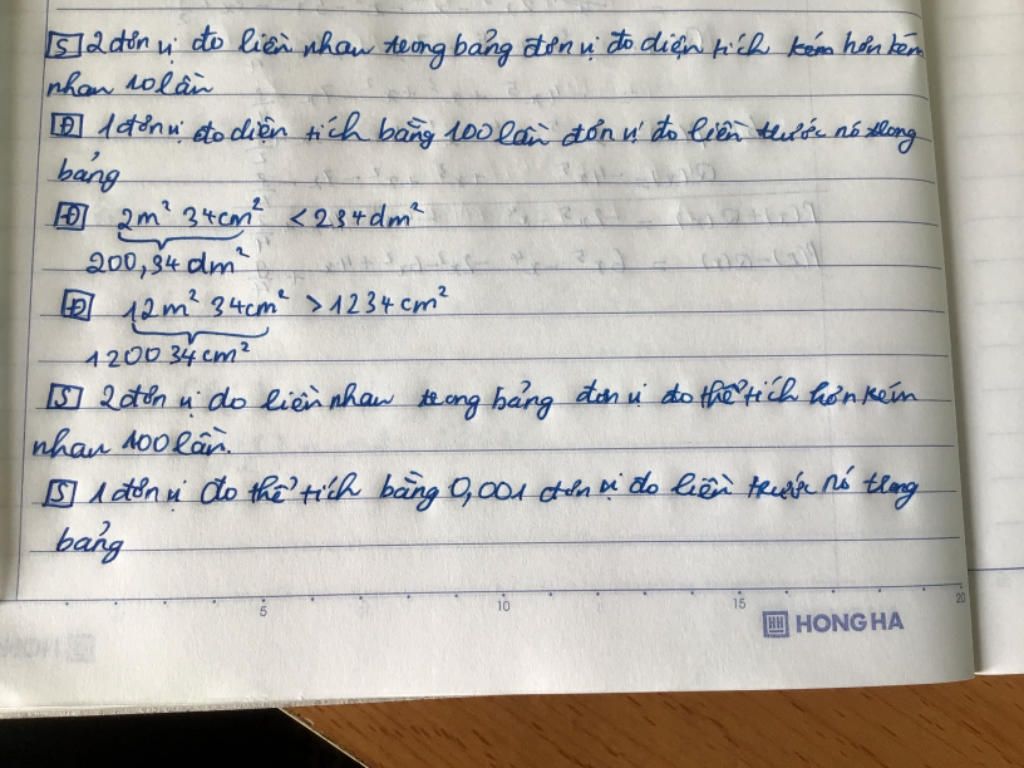 [S] 2 đơn vị đo liền nhau trong bảng đơn vị đo diện tích kém hơn kém
nhau 10 lần
[Đ] 1 đơn vị đo diện tích bằng 100 lần đơn vị đo liền trước nó trong
bảng
[Đ] 2m² 34cm² < 234dm²
200,34 dm²
[Đ] 12m² 34cm² > 1234cm²
120034cm²
[S] 2 đơn vị đo liền nhau trong bảng đơn vị đo thể tích hơn kém
nhau 100 lần.
[S] 1 đơn vị đo thể tích bằng 0,001 đơn vị đo liền trước nó trong
bảng
5 10 15 20
HH HONG HA